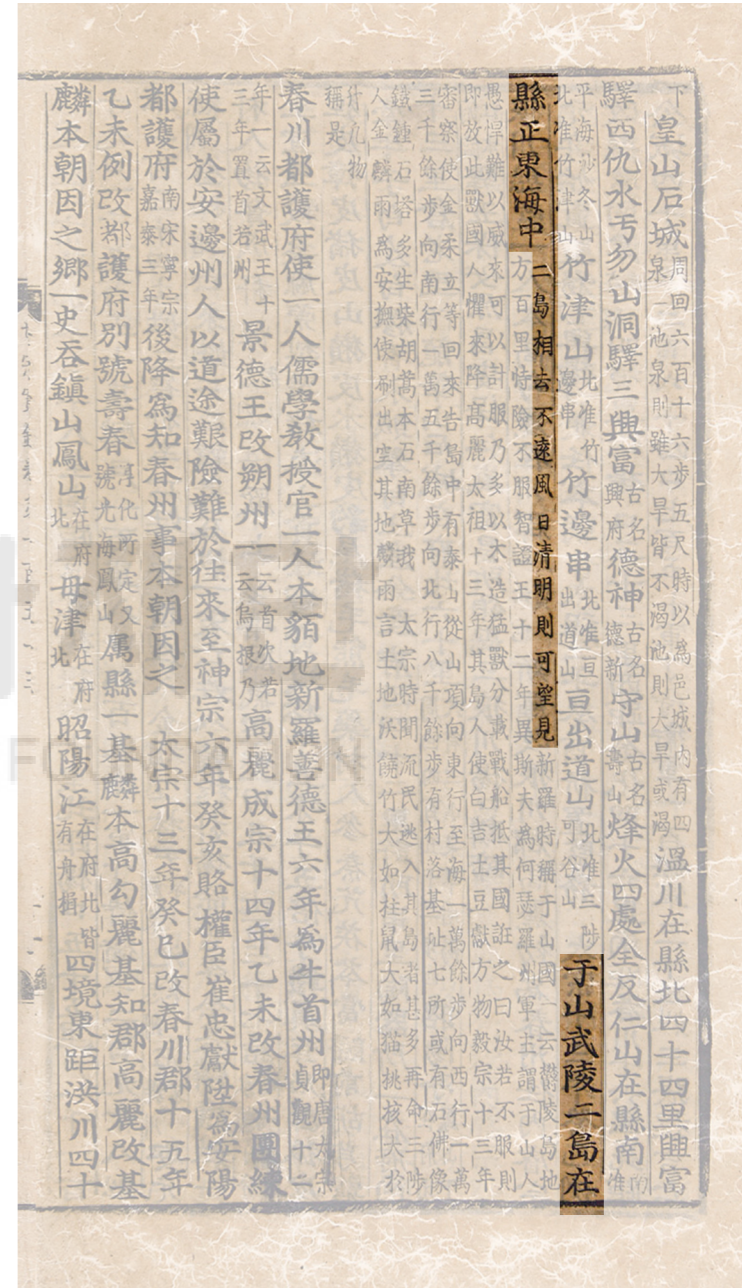 下皇山石城周回六百十六步五尺時以爲邑城内有四泉一池泉則雖大旱皆不渴池則大旱或渴溫川在縣北四十四里興富
驛西仇水亐勿山洞驛三興富古名興府德神古名德新守山古名壽山烽火四處全反仁山在縣南准南
平海沙冬山北准竹津山竹津山北准竹邊串竹邊串北准亘出道山亘出道山北准三陟可谷山于山武陵二島在
縣正東海中二島相去不遠風日清明則可望見新羅時稱于山國一云鬱陵島地
方百里恃險不服智證王十二年異斯夫為何瑟羅州軍主謂于山人
愚悍難以威來可以計服乃多以木造猛獸分載戰船抵其國誑之曰汝若不服則
即放此獸國人懼來降高麗太祖十三年其島人使白吉土豆獻方物毅宗十三年
審察使金柔立等回來告島中有泰山從山頂向東行至海一萬餘步向西行一萬
三千餘步向南行一萬五千餘步向北行八千餘步有村落基址七所或有石佛像
鐵鍾石塔多生柴胡蒿本石南草我太宗時聞流民逃入其島者甚多再命三陟
人金麟雨爲安撫使刷出空其地麟雨言土地沃饒竹大如柱鼠大如猫桃核大於
升凡物稱是
春川都護府使一人儒學敎授官一人本貊地新羅善德王六年爲牛首州即唐太宗貞觀十一
年一云文武王十三年置首若州景德王改朔州一云首次若一云烏根乃高麗成宗十四年乙未改春州團練
使屬於安邊州人以道途艱險難於往來至神宗六年癸亥賂權臣崔忠獻陞爲安陽
都護府南宋寧宗嘉泰三年後降爲知春州事本朝因之太宗十三年癸巳改春川郡十五年
乙未例改都護府別號壽春淳化所定又號光海鳳山属縣一基麟本高勾麗基知郡高麗改基
麟本朝因之鄉一史呑鎮山鳳山在府北母津在府北昭陽江在府北皆有舟楫四境東距洪川四十
재단
FOUNDATION